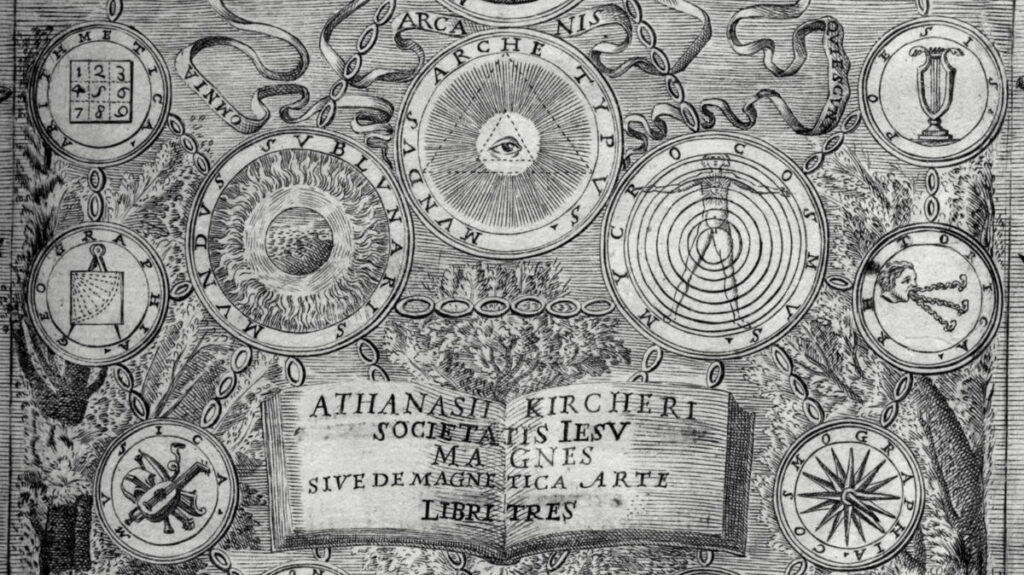 ARCANIS
OMNIA
QVIESCVN
ARITHMETICA
1 2 3
4 5 6
7 8 9
MVNDVS ARCHETYPVS
POESIS
MVNDVS SVBLVNARIS
MICROCOSMVS
GEOGRAPHIA
ATHANASII KIRCHERI
SOCIETATIS IESV
MAGNES
SIVE DE MAGNETICA ARTE
LIBRI TRES
MVSICA
COSMOGRAPHIA